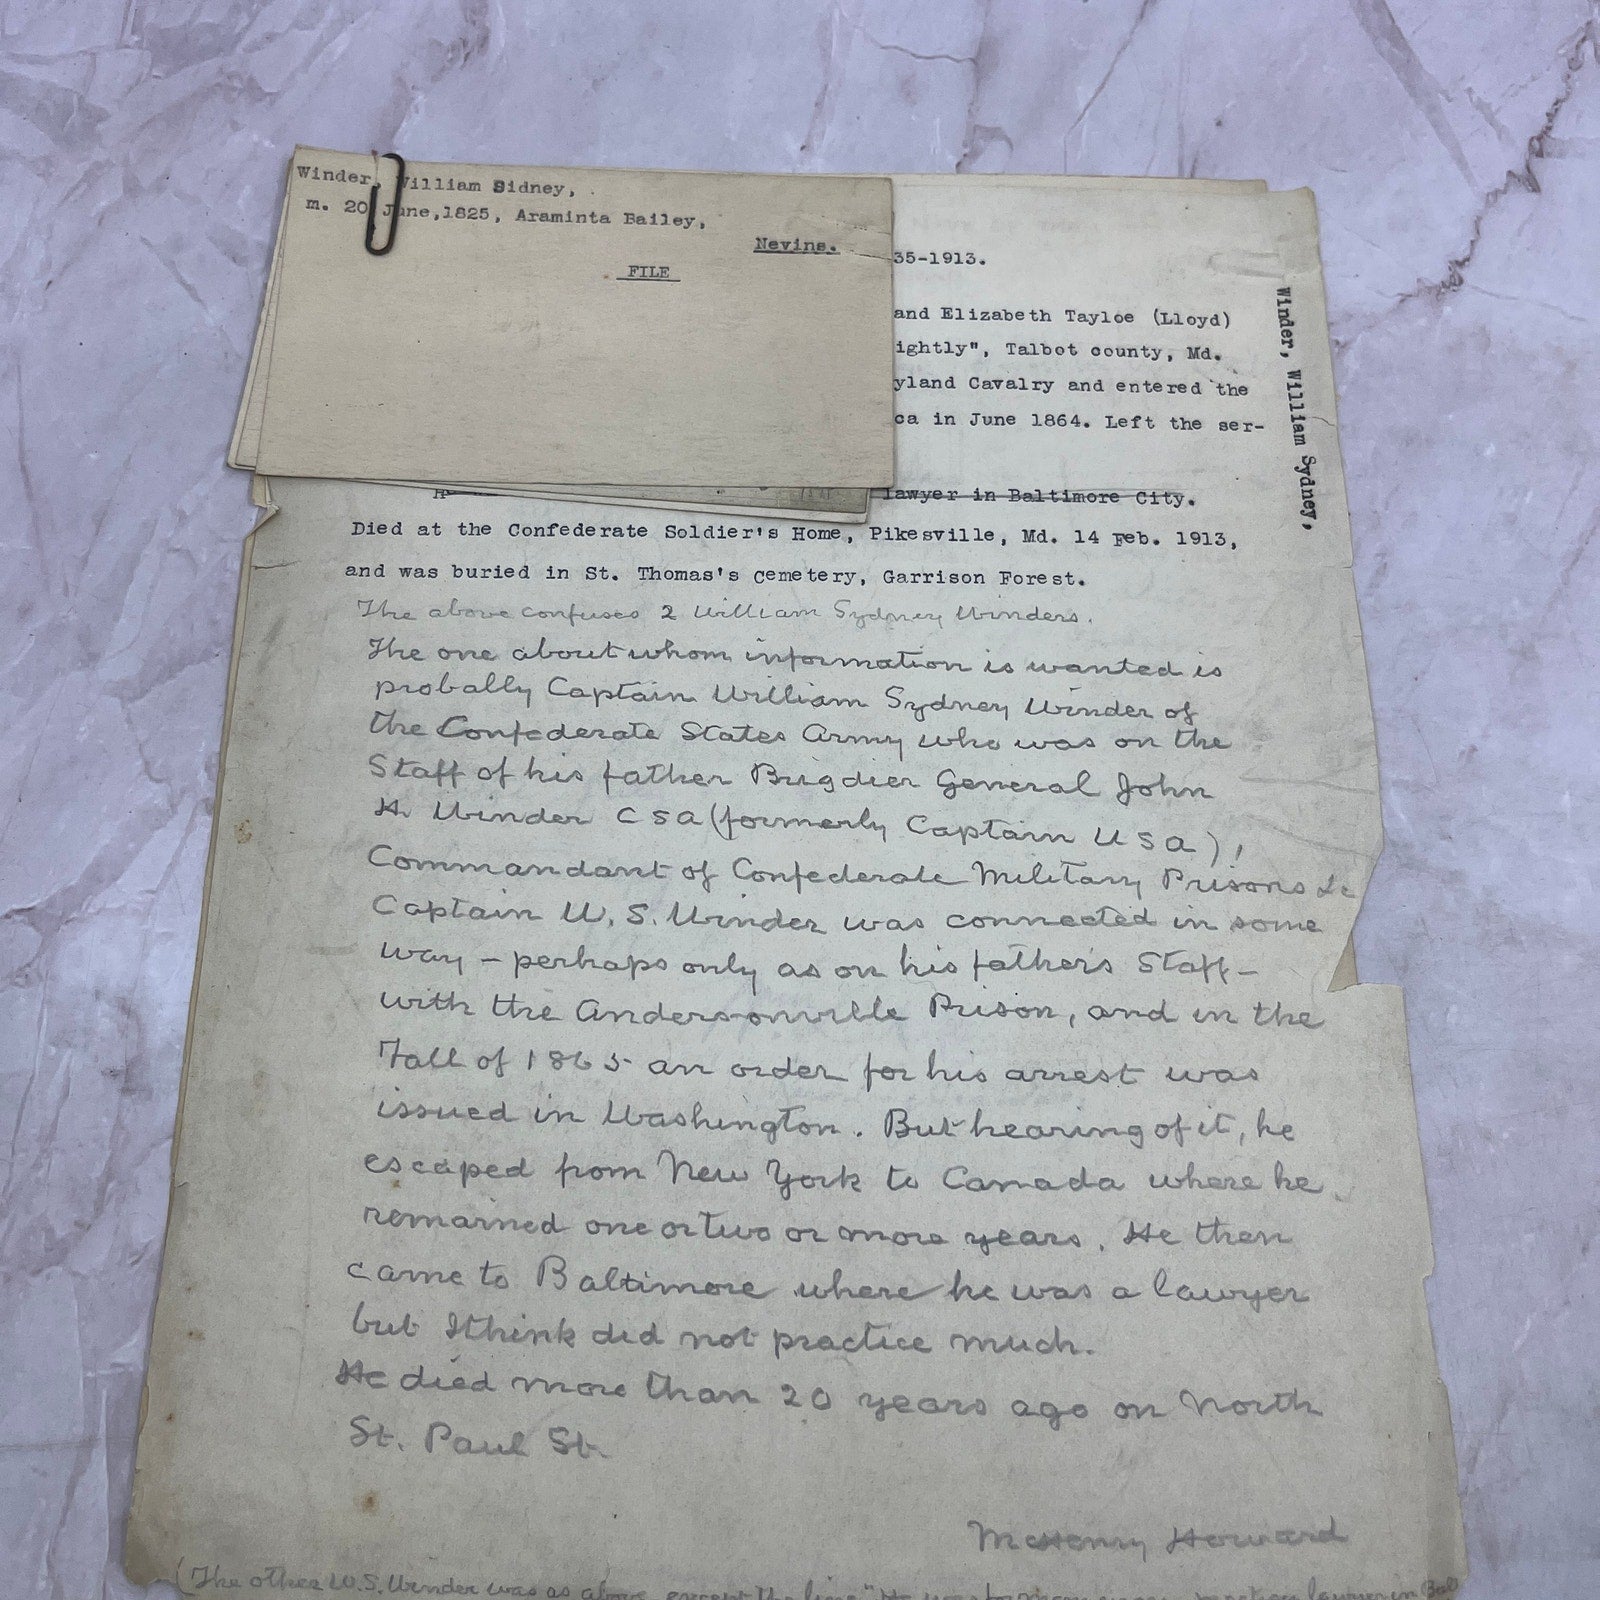 Winder, William Sidney,
m. 20 June,1825, Araminta Bailey,
Nevins.
FILE
35-1913.
and Elizabeth Tayloe (Lloyd)
ightly", Talbot county, Md.
yland Cavalry and entered the
ca in June 1864. Left the ser-
lawyer in Baltimore City.
Died at the Confederate Soldier's Home, Pikesville, Md. 14 Feb. 1913,
and was buried in St. Thomas's cemetery, Garrison Forest.
Winder, William Sydney,
The above confuses 2 William Sydney Winders.
The one about whom information is wanted is
probally Captain William Sydney Winder of
the Confederate States Army who was on the
Staff of his father Brigdier General John
H. Winder C S A (formerly Captain U S A),
Commandant of Confederate Military Prisons &c
Captain W. S. Winder was connected in some
way – perhaps only as on his father's Staff –
with the Andersonville Prison, and in the
Fall of 1865 an order for his arrest was
issued in Washington. But hearing of it, he
escaped from New York to Canada where he
remained one or two or more years. He then
came to Baltimore where he was a lawyer
but I think did not practice much.
He died more than 20 years ago on North
St. Paul St.
McHenry Howard
(The other W. S. Winder was as above except the line "He was for many years lawyer in Bal